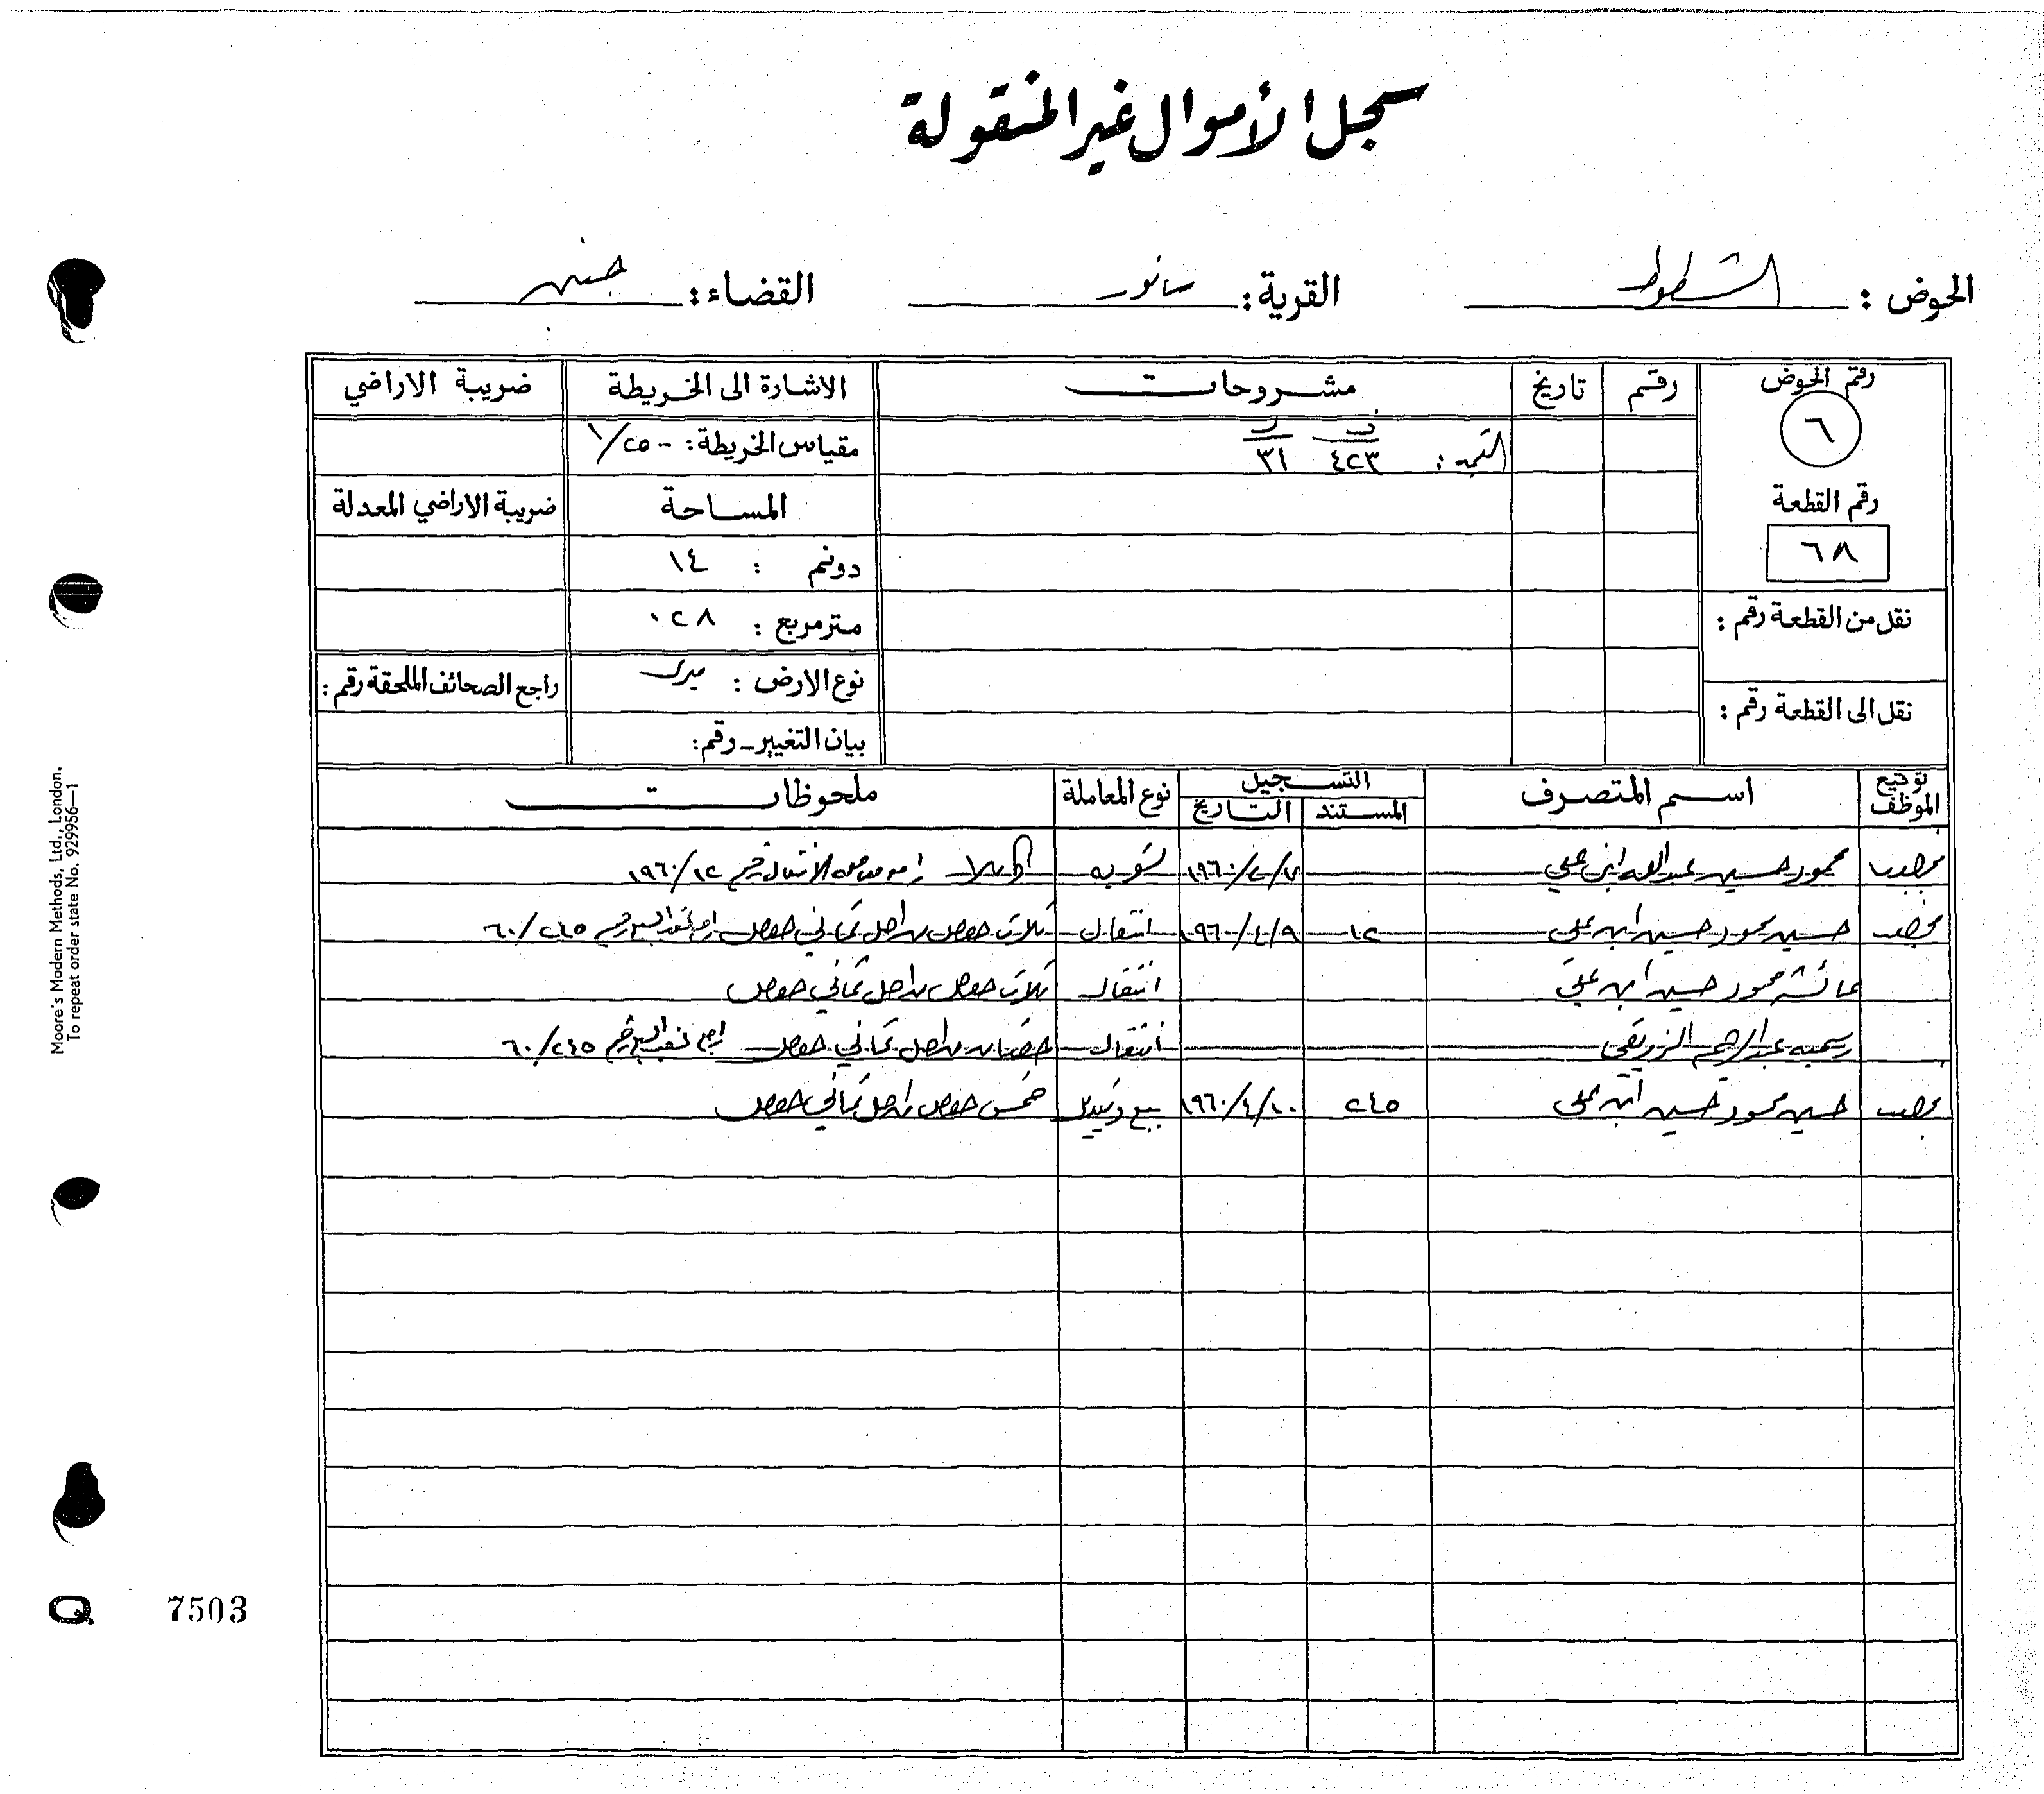 سجل الأموال غير المنقولة
الحوض : الشطوط القرية : سانور القضاء : جنين
رقم الحوض رقم تاريخ مشروحات الاشارة الى الخريطة ضريبة الاراضي
٦ ف ف
٤٢٣ ٣١ مقياس الخريطة : ١/٢٥٠٠
رقم القطعة المساحة ضريبة الاراضي المعدلة
٦٨ دونم : ١٤
نقل من القطعة رقم : متر مربع : ٠٢٨
نوع الارض : ميري راجع الصحائف الملحقة رقم :
نقل الى القطعة رقم : بيان التغيير - رقم :
توقيع الموظف اسم المتصرف التسجيل نوع المعاملة ملحوظات
المستند التاريخ
محمود حسين عبدالله ابن علي ١٩٦٠/٢/٧ تسويه كاملا ١٩٦٠/١٢
حسين محمود حسين ابن علي ١٢ ١٩٦٠/٤/٩ انتقال ثلاث حصص من اصل ثماني حصص ٦٠/٢٤٥
عائشه محمود حسين ابن علي انتقال ثلاث حصص من اصل ثماني حصص
رسميه عبدالرحيم انتقال حصتان من اصل ثماني حصص ٦٠/٢٤٥
حسين محمود حسين ابن علي ٢٤٥ ١٩٦٠/٤/١٠ بيع خمس حصص من اصل ثماني حصص
Moore's Modern Methods, Ltd., London.
To repeat order state No. 929956—1
Q 7503